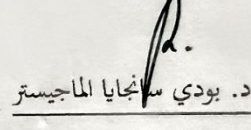 د. بودي سانجايا الماجيستر